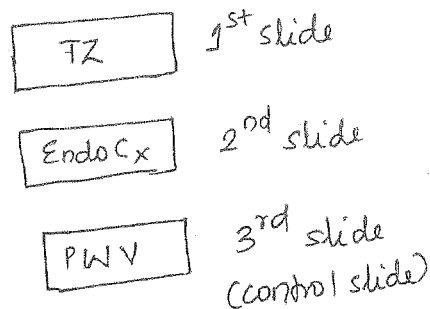 TZ 1st slide
EndoCx 2nd slide
PWV 3rd slide
(control slide)